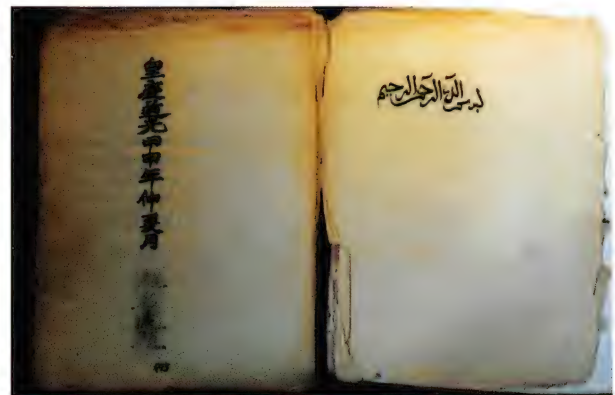 بسم الله الرحمن الرحيم
皇道光甲申年仲夏月